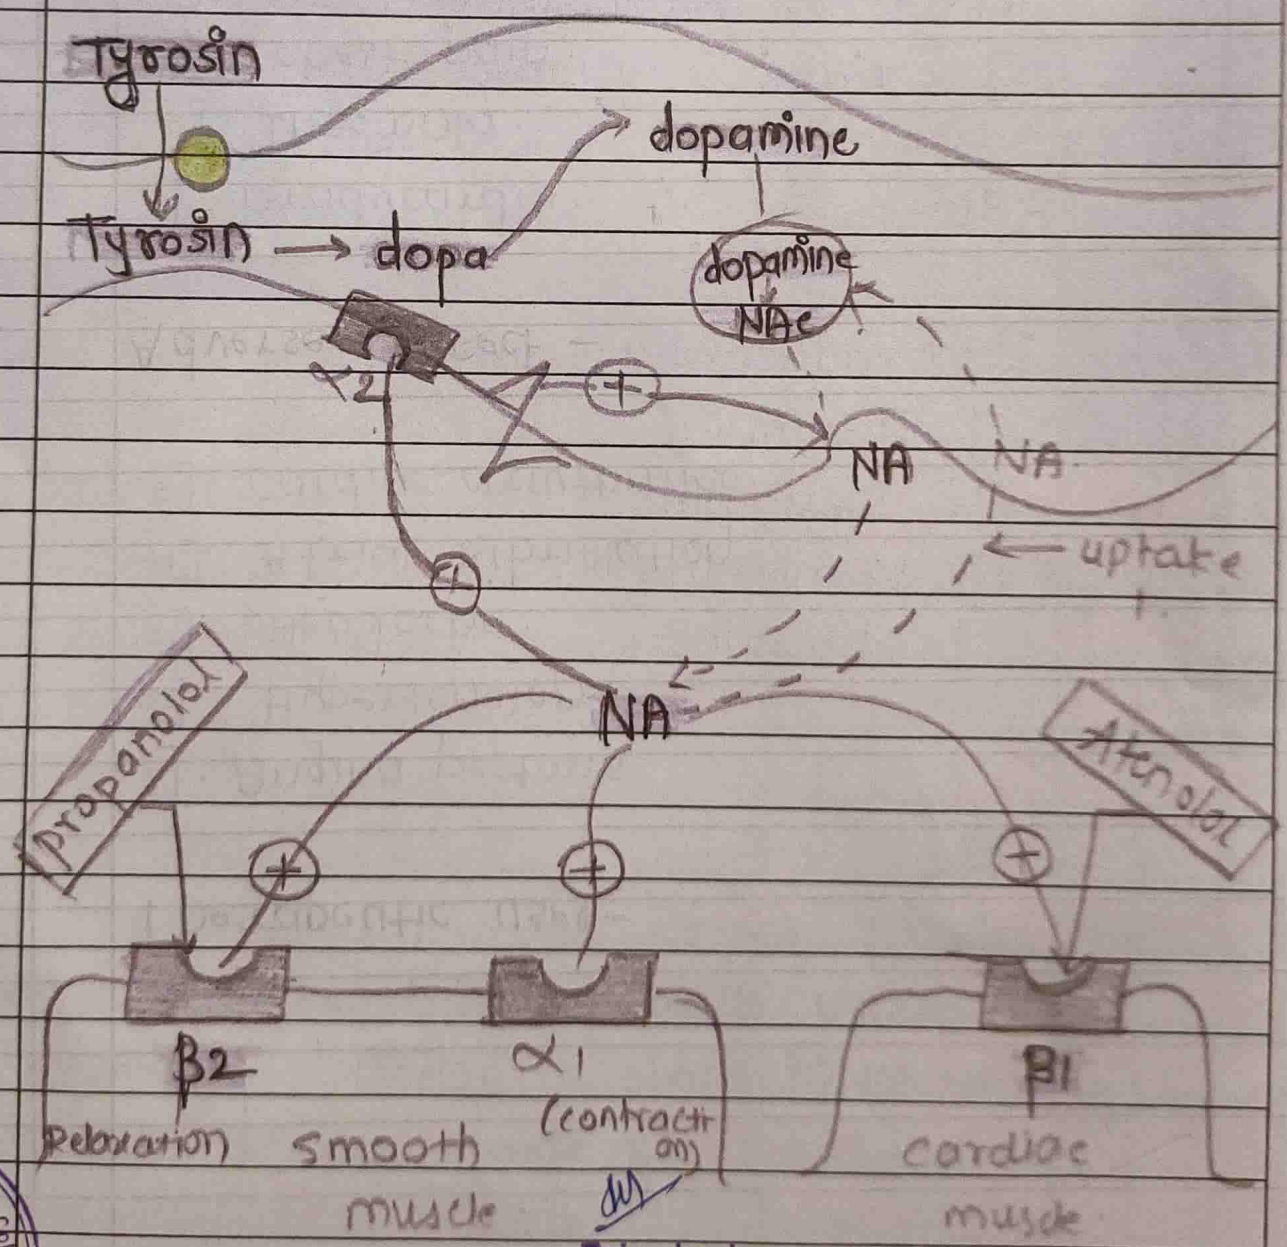 Tyrosin
dopamine
Tyrosin → dopa
dopamine
NAe
α2
+
NA
NA
← uptake
+
NA
propanolol
Atenolol
+
+
+
β2
α1
β1
Relaxation
(contracti
on)
smooth
muscle
cardiac
muscle